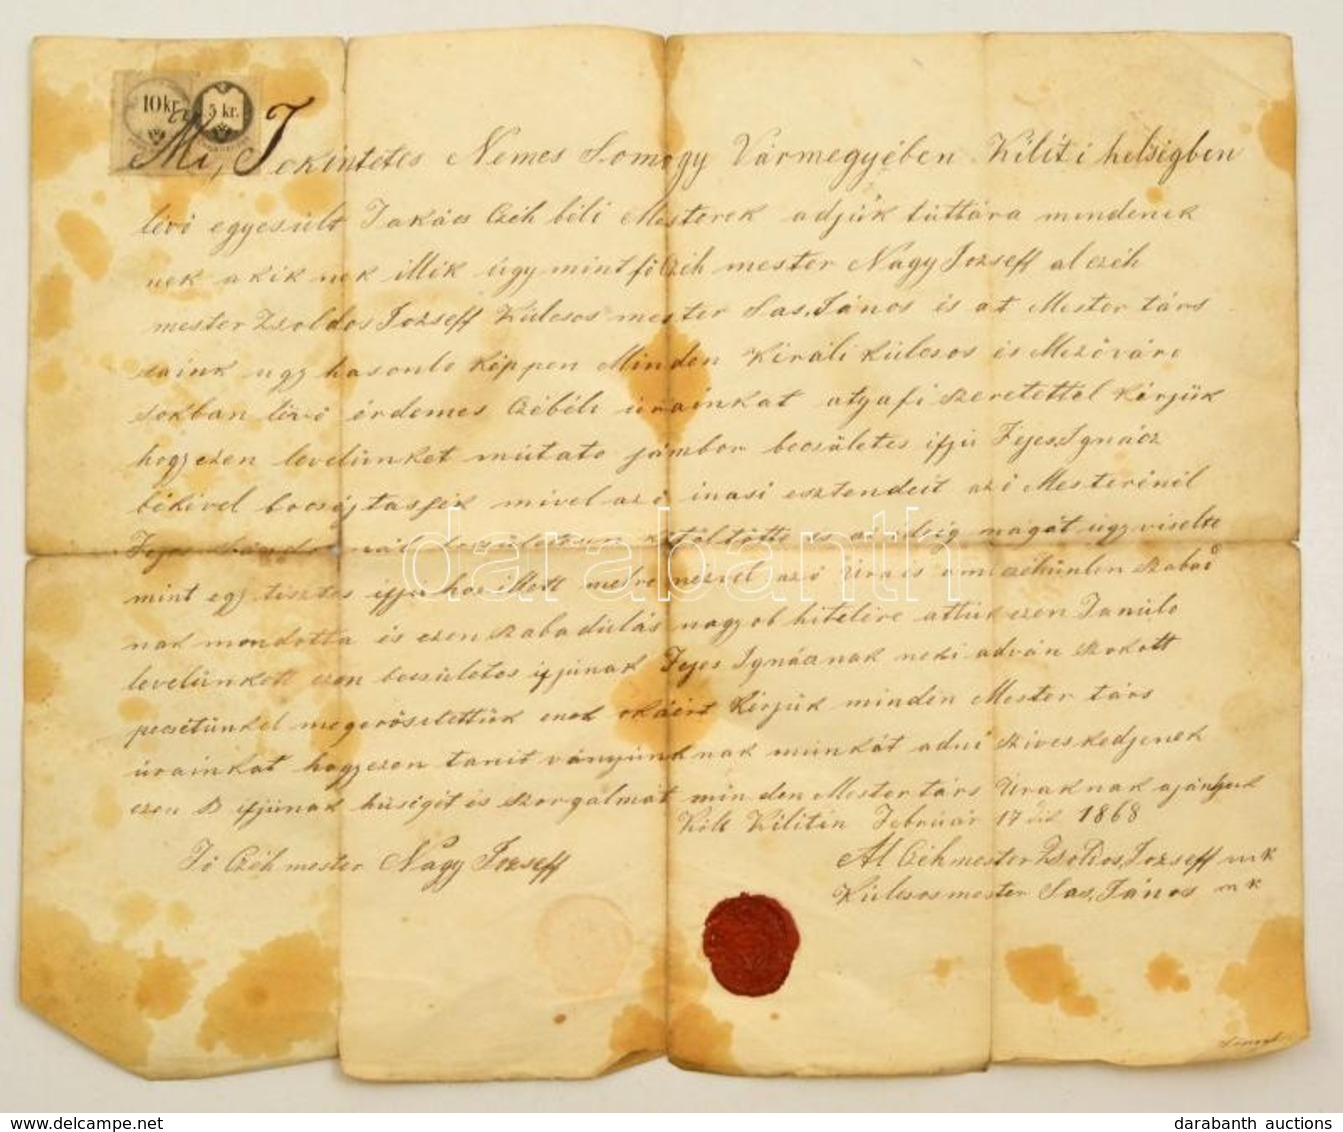 10 kr.
5 kr.
Mi, a Tekintetes Nemes Somogy Vármegyében Kiliti helsigben
lévö egyesült Takács Czéh béli Mesterek adjuk tuttára mindenek
nek a kik nek illik úgy mint fö Czéh mester Nagy Jozseff al czéh
mester Zsoldos Jozseff Külcsos mester Sas, János és at Mester társ
saink ugy hasonlo képpen Minden Királi külcsos és Mezöváro
sokban lévö érdemes Czébéli urainkat atyafi szeretettel kérjük
hogy ezen levelünket mútato jámbor becsületes ifjú Fejes, Ignácz
békével bocsájtassék mivel az ö inasi esztendeit az ö Mesterénél
Fejes nál becsületesen kitöltötte és az ideig magát úgy viselte
mint egy tisztes ifjuhoz illett melre nézvel az ö Ura is a mi czéhünlen szabad
nak mondotta és ezen szabadúlás nagyob hitelére attuk ezen Tanúlo
levelünkett ezen becsületes ifjúnak Fejes Ignácznak neki adván szokott
pecsétünkel megerösetettük enek okáért kérjük minden Mester társ
úrainkat hogy ezen tanit ványunk nak munkát adni szíveskedjenek
ezen ifjúnak hüségét és szorgalmát min den Mester társ Uraknak ajánljuk
Költ Kilitin Február 17 dik 1868
Fö Czéh mester Nagy Jozseff
Al Czéhmester Zsoldos, Jozseff m k
Külcsos mester Sas, János m k
darabanth
darabanth auctions